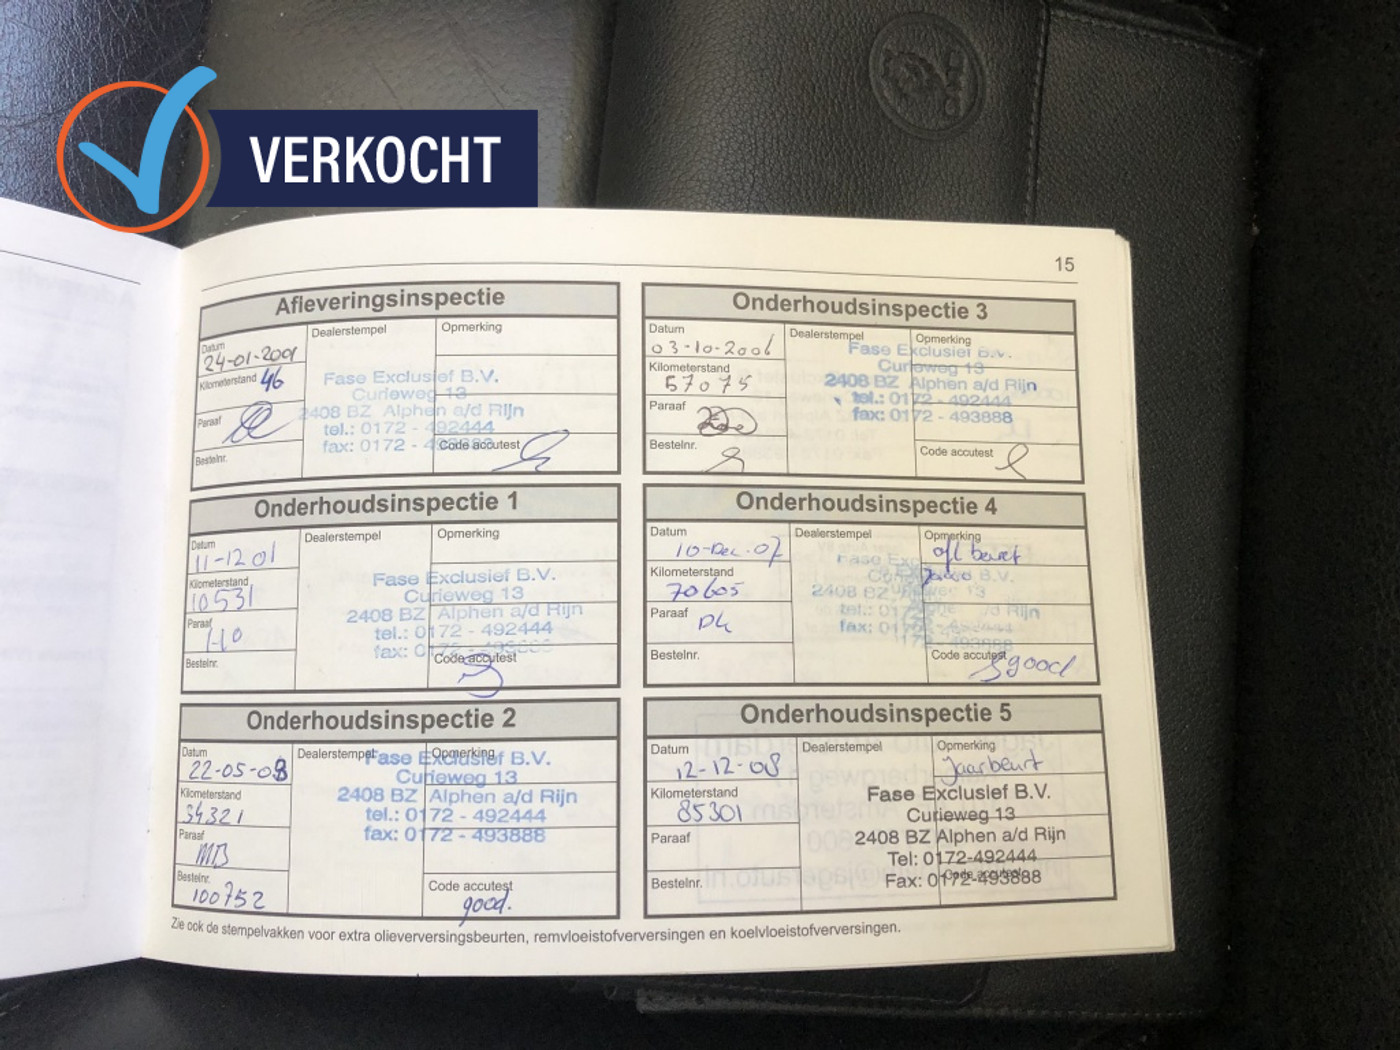 VERKOCHT
15
Afleveringsinspectie
Datum
24-01-2001
Kilometerstand 46
Paraaf
Bestelnr.
Dealerstempel
Opmerking
Fase Exclusief B.V.
Curieweg 13
2408 BZ Alphen a/d Rijn
tel.: 0172 - 492444
fax: 0172 - 493888
Code accutest
Onderhoudsinspectie 1
Datum
11-12 01
Kilometerstand
10531
Paraaf
Bestelnr.
Dealerstempel
Opmerking
Fase Exclusief B.V.
Curieweg 13
2408 BZ Alphen a/d Rijn
tel.: 0172 - 492444
fax: 0172 - 493888
Code accutest
Onderhoudsinspectie 2
Datum
22-05-03
Kilometerstand
34321
Paraaf
MB
Bestelnr.
100752
Dealerstempel
Opmerking
Fase Exclusief B.V.
Curieweg 13
2408 BZ Alphen a/d Rijn
tel.: 0172 - 492444
fax: 0172 - 493888
Code accutest
good.
Onderhoudsinspectie 3
Datum
03-10-2006
Kilometerstand
57075
Paraaf
Bestelnr.
Dealerstempel
Opmerking
Fase Exclusief B.V.
Curieweg 13
2408 BZ Alphen a/d Rijn
tel.: 0172 - 492444
fax: 0172 - 493888
Code accutest
Onderhoudsinspectie 4
Datum
10-Dec-07
Kilometerstand
70605
Paraaf
DK
Bestelnr.
Dealerstempel
Opmerking
Code accutest
good
Onderhoudsinspectie 5
Datum
12-12-08
Kilometerstand
85301
Paraaf
Bestelnr.
Dealerstempel
Opmerking
Jaarbeurt
Fase Exclusief B.V.
Curieweg 13
2408 BZ Alphen a/d Rijn
Tel: 0172-492444
Fax: 0172-493888
Code accutest
Zie ook de stempelvakken voor extra olieverversingsbeurten, remvloeistofverversingen en koelvloeistofverversingen.